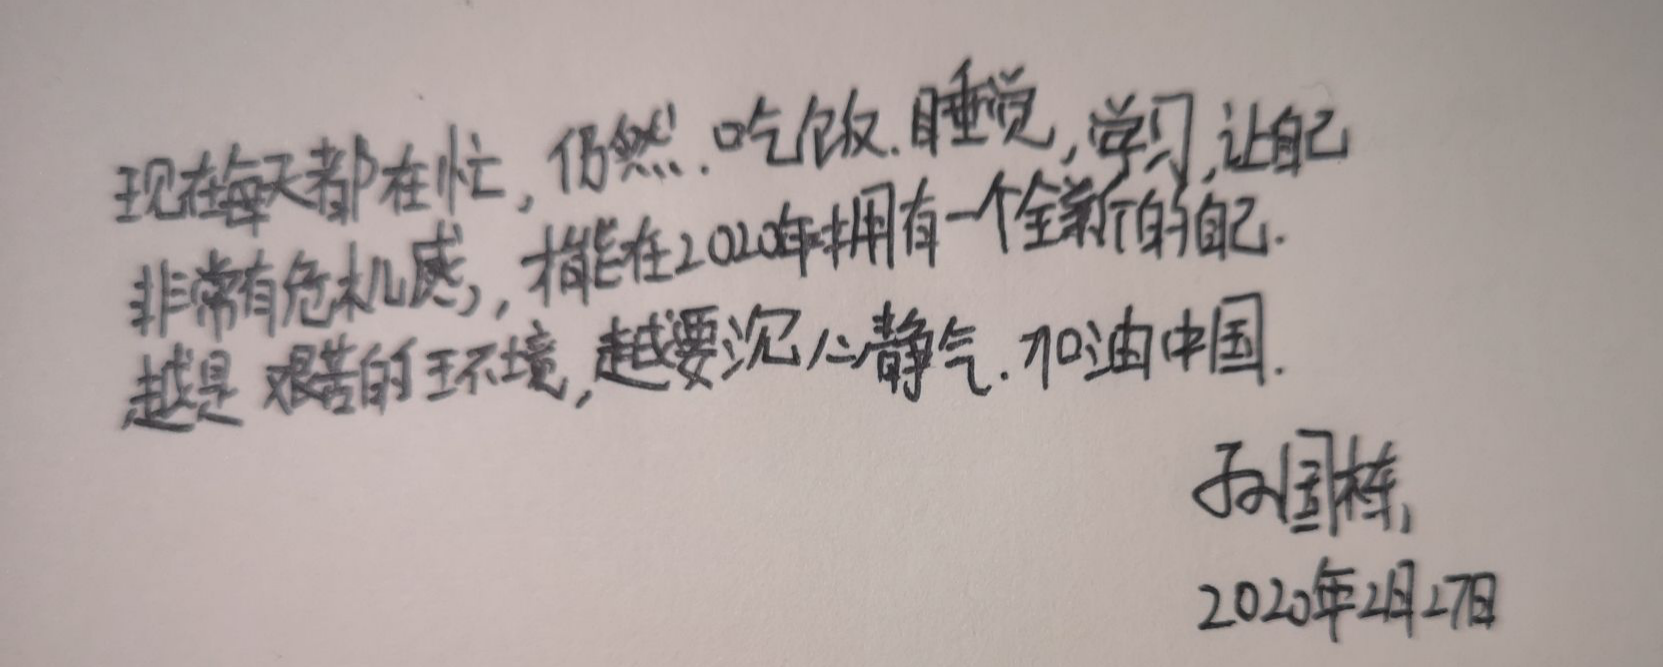 现在每天都在忙，仍然.吃饭.睡觉，学习，让自己
非常有危机感，才能在2020年拥有一个全新的自己.
越是艰苦的环境，越要沉心静气.加油中国.
孙国栋
2020年2月27日